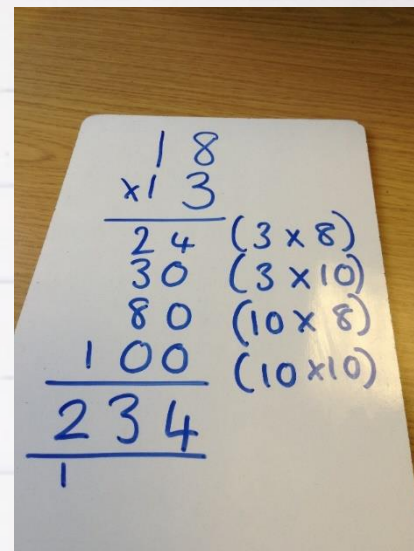 18
x13
24 (3 x 8)
30 (3 x 10)
80 (10 x 8)
100 (10 x10)
234
1